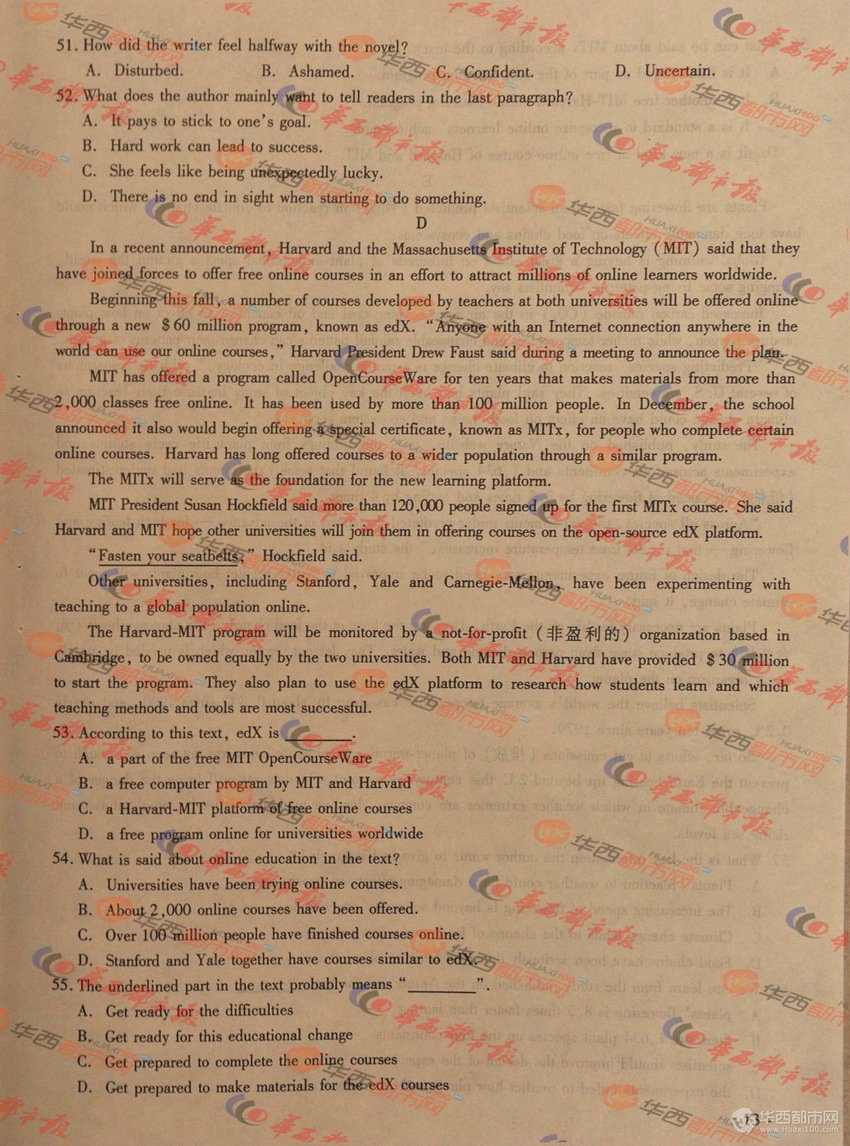 51. How did the writer feel halfway with the novel?
A. Disturbed. B. Ashamed. C. Confident. D. Uncertain.
52. What does the author mainly want to tell readers in the last paragraph?
A. It pays to stick to one's goal.
B. Hard work can lead to success.
C. She feels like being unexpectedly lucky.
D. There is no end in sight when starting to do something.
D
In a recent announcement, Harvard and the Massachusetts Institute of Technology (MIT) said that they
have joined forces to offer free online courses in an effort to attract millions of online learners worldwide.
Beginning this fall, a number of courses developed by teachers at both universities will be offered online
through a new $60 million program, known as edX. “Anyone with an Internet connection anywhere in the
world can use our online courses,” Harvard President Drew Faust said during a meeting to announce the plan.
MIT has offered a program called OpenCourseWare for ten years that makes materials from more than
2,000 classes free online. It has been used by more than 100 million people. In December, the school
announced it also would begin offering a special certificate, known as MITx, for people who complete certain
online courses. Harvard has long offered courses to a wider population through a similar program.
The MITx will serve as the foundation for the new learning platform.
MIT President Susan Hockfield said more than 120,000 people signed up for the first MITx course. She said
Harvard and MIT hope other universities will join them in offering courses on the open-source edX platform.
“Fasten your seatbelts,” Hockfield said.
Other universities, including Stanford, Yale and Carnegie-Mellon, have been experimenting with
teaching to a global population online.
The Harvard-MIT program will be monitored by a not-for-profit (非盈利的) organization based in
Cambridge, to be owned equally by the two universities. Both MIT and Harvard have provided $30 million
to start the program. They also plan to use the edX platform to research how students learn and which
teaching methods and tools are most successful.
53. According to this text, edX is ________.
A. a part of the free MIT OpenCourseWare
B. a free computer program by MIT and Harvard
C. a Harvard-MIT platform of free online courses
D. a free program online for universities worldwide
54. What is said about online education in the text?
A. Universities have been trying online courses.
B. About 2,000 online courses have been offered.
C. Over 100 million people have finished courses online.
D. Stanford and Yale together have courses similar to edX.
55. The underlined part in the text probably means “________”.
A. Get ready for the difficulties
B. Get ready for this educational change
C. Get prepared to complete the online courses
D. Get prepared to make materials for the edX courses
华西都市网
www.Huaxi100.com